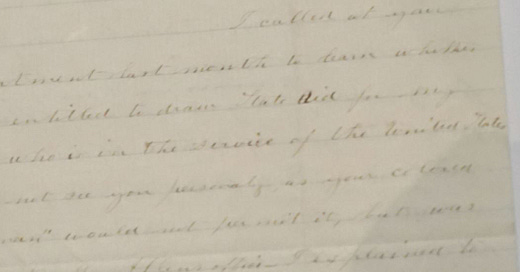 I called at your
tment last month to learn whether
entitled to draw State Aid for my
who is in the service of the United States
not see you personaly as your colored
man" would not permit it, but was
I explained to